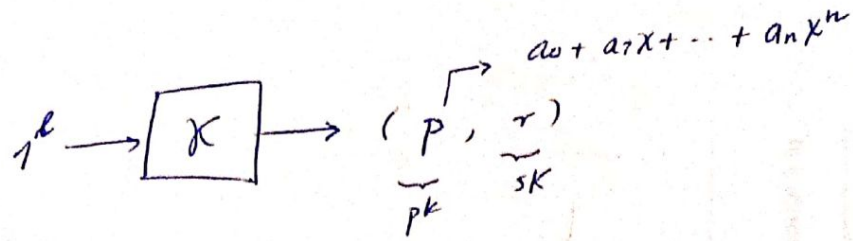 a₀ + a₁x + ... + aₙxⁿ
1^ℓ → K → ( p , r )
pk sk